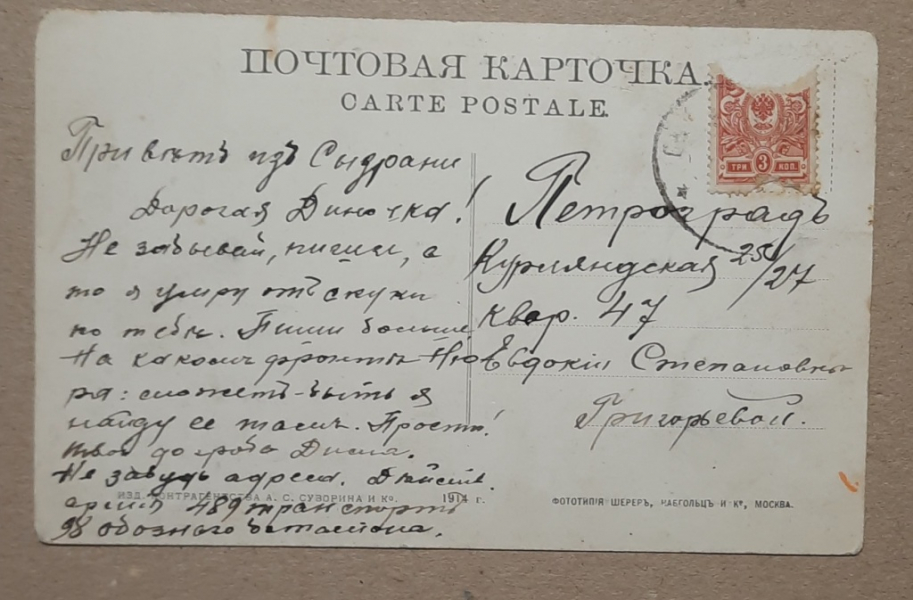 ПОЧТОВАЯ КАРТОЧКА.
CARTE POSTALE.
ТРИ 3 КОП.
Привѣтъ изъ Сыдрани
Дорогая Диночка!
Не забывай, пиши, а
то я умру отъ скуки
по тебѣ. Пиши больше
На какомъ фронтѣ Ню
ра: можетъ-быть я
найду ее тамъ. Прости!
твой до гроба Дима.
Не забудь адреса. Дѣйств.
армія 489 транспортъ
98 обознаго батальона.
Петроградъ
Курляндская 25/27
квар. 47
Евдокіи Степановны
Григорьевой.
ИЗД. КОНТРАГЕНТСТВА А. С. СУВОРИНА И Кº. 1914 г.
ФОТОТИПІЯ ШЕРЕРЪ, НАБГОЛЬЦЪ И Кº, МОСКВА.